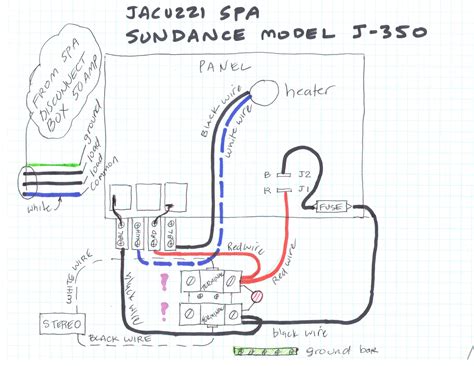 JACUZZI SPA
SUNDANCE MODEL J-350
FROM SPA
DISCONNECT
BOX 50AMP
PANEL
heater
Black wire
white wire
ground
load
load
common
white
B
J2
R
J1
FUSE
BL
WH
RD
BL
Red wire
Red wire
WHITE WIRE
BLACK WIRE
!
!
TERMINAL
TERMINAL
STEREO
BLACK WIRE
black wire
ground bar